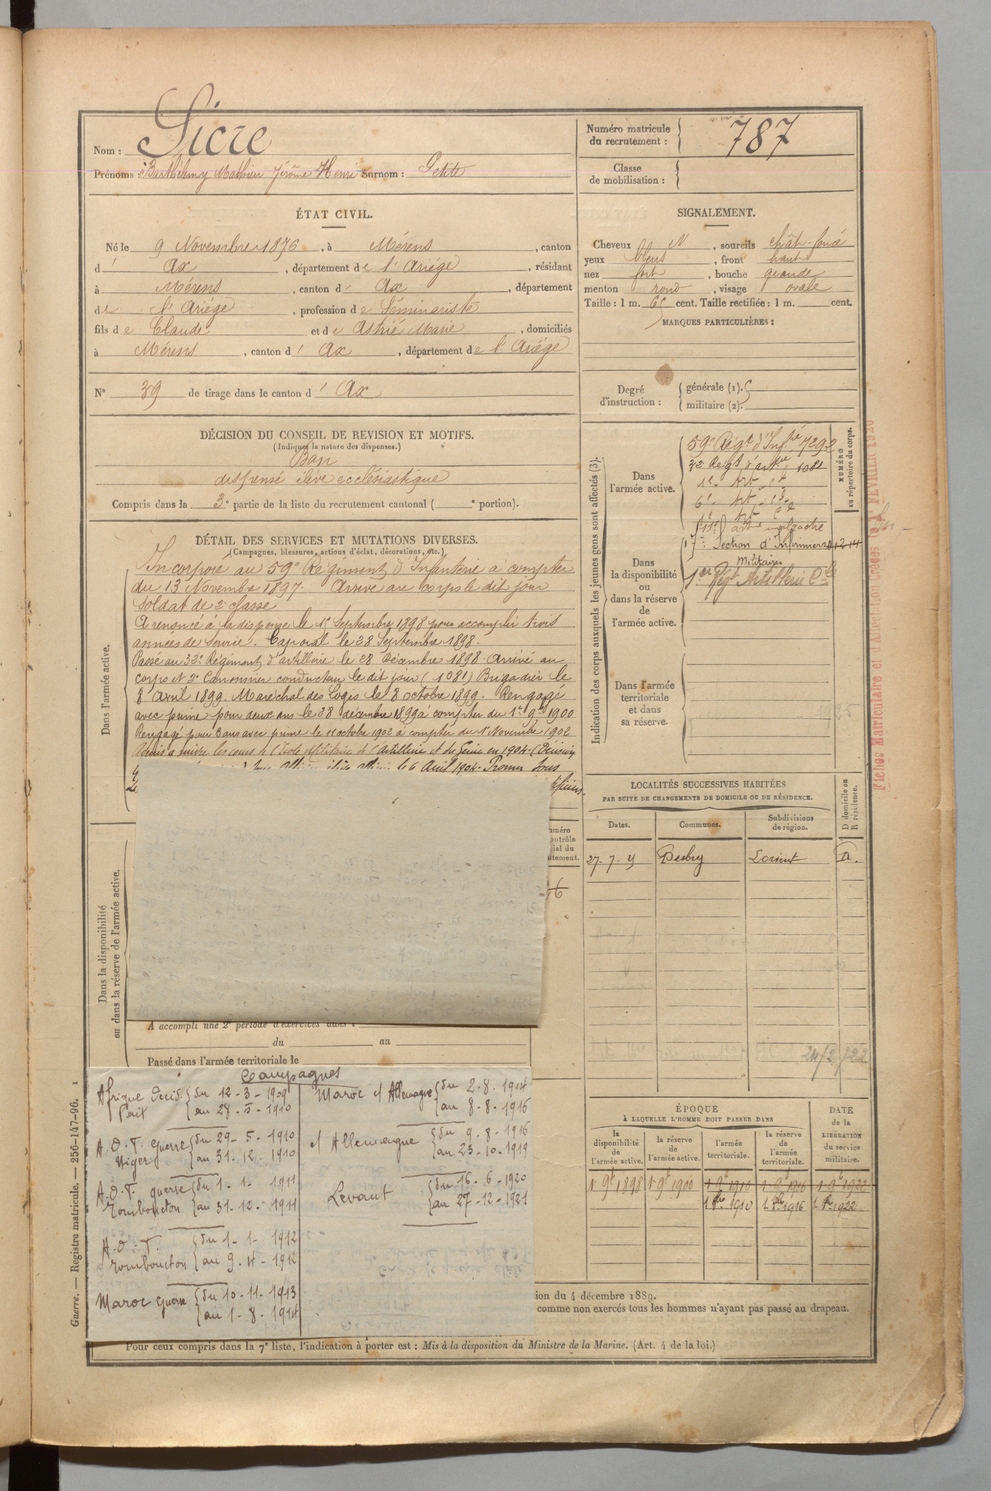 Nom : Sicre
Prénoms : Barthélemy Mathieu Jérôme Henri Surnom : Petite
ÉTAT CIVIL.
Né le 9 Novembre 1876, à Mérens, canton
d' Ax, département de l'Ariége, résidant
à Mérens, canton d' Ax, département
de l'Ariége, profession de Séminariste
fils de Claude et de Astrié Marie, domiciliés
à Mérens, canton d' Ax, département de l'Ariége
N° 39 de tirage dans le canton d' Ax
DÉCISION DU CONSEIL DE REVISION ET MOTIFS.
(Indiquer la nature des dispenses.)
Bon
dispensé élève ecclésiastique
Compris dans la 3e partie de la liste du recrutement cantonal ( e portion).
DÉTAIL DES SERVICES ET MUTATIONS DIVERSES.
(Campagnes, blessures, actions d'éclat, décorations, etc.)
Dans l'armée active.
Incorporé au 59e Régiment d'Infanterie à compter
du 13 Novembre 1897. Arrivé au corps le dit jour
soldat de 2e classe
A renoncé à la dispense le 1er Septembre 1898 pour accomplir trois
années de service. Caporal le 28 Septembre 1898.
Passé au 32e Régiment d'artillerie le 28 Décembre 1898. Arrivé au
corps et 2e Canonnier conducteur le dit jour (1081) Brigadier le
8 avril 1899. Maréchal des Logis le 8 octobre 1899. Rengagé
avec prime pour deux ans le 28 décembre 1899 à compter du 1er 9bre 1900
Rengagé pour 3 ans avec prime le 11 octobre 1902 à compter du 1er Novembre 1902
Admis à suivre les cours de l'école Militaire de l'Artillerie et du Génie en 1904 (Décision
le 6 Avril 1904. Promu Sous
Dans la disponibilité
ou dans la réserve de l'armée active.
A accompli une 2e période d'exercices dans l
du au
Passé dans l'armée territoriale le
Campagnes
Afrique Occid. { du 12-3-1909
au 28-5-1910
A.O.F. guerre { du 29-5-1910
Niger au 31-12-1910
A.O.F. guerre { du 1-1-1911
Tombouctou au 31-12-1911
A.O.F. { du 1-1-1912
Tombouctou au 9-11-1912
Maroc guerre { du 10-11-1913
au 1-8-1914
Maroc et Allemagne { du 2-8-1914
au 8-8-1916
et Allemagne { du 9-8-1916
au 23-10-1919
Levant { du 16-6-1920
au 27-12-1921
Pour ceux compris dans la 7e liste, l'indication à porter est : Mis à la disposition du Ministre de la Marine. (Art. 4 de la loi.)
Guerre. — Registre matricule. — 256-147-96. 1
Numéro matricule
du recrutement : 787
Classe
de mobilisation :
SIGNALEMENT.
Cheveux N, sourcils chât-foncé
yeux bleus, front haut
nez fort, bouche grande
menton rond, visage ovale
Taille : 1 m. 65 cent. Taille rectifiée : 1 m. cent.
MARQUES PARTICULIÈRES :
Degré
d'instruction :
générale (1).
militaire (2).
Indication des corps auxquels les jeunes gens sont affectés (3).
NUMÉRO
au répertoire du corps.
Dans
l'armée active.
59e Régt d'Infrie 7292
32e Régt d'artie 1081
Dans
la disponibilité
ou
dans la réserve
de
l'armée active.
17e Section d'Infirmiers
Militaires
1er Régt Artillerie Cle
Dans l'armée
territoriale
et dans
sa réserve.
LOCALITÉS SUCCESSIVES HABITÉES
PAR SUITE DE CHANGEMENTS DE DOMICILE OU DE RÉSIDENCE.
Dates.
Communes.
Subdivisions
de région.
D domicile ou
R résidence.
Lorient
24/2/22
ÉPOQUE
À LAQUELLE L'HOMME DOIT PASSER DANS
la
disponibilité
de
l'armée active.
la réserve
de
l'armée active.
l'armée
territoriale.
la réserve
de
l'armée
territoriale.
DATE
de la
LIBÉRATION
du service
militaire.
1er 9bre 1898 1er 9bre 1900 1er 9bre 1910 1er 9bre 1916 1er 9bre 1922
1er 8bre 1910 1er 8bre 1916 1er 8bre 1922
ion du 4 décembre 1889.
comme non exercés tous les hommes n'ayant pas passé au drapeau.